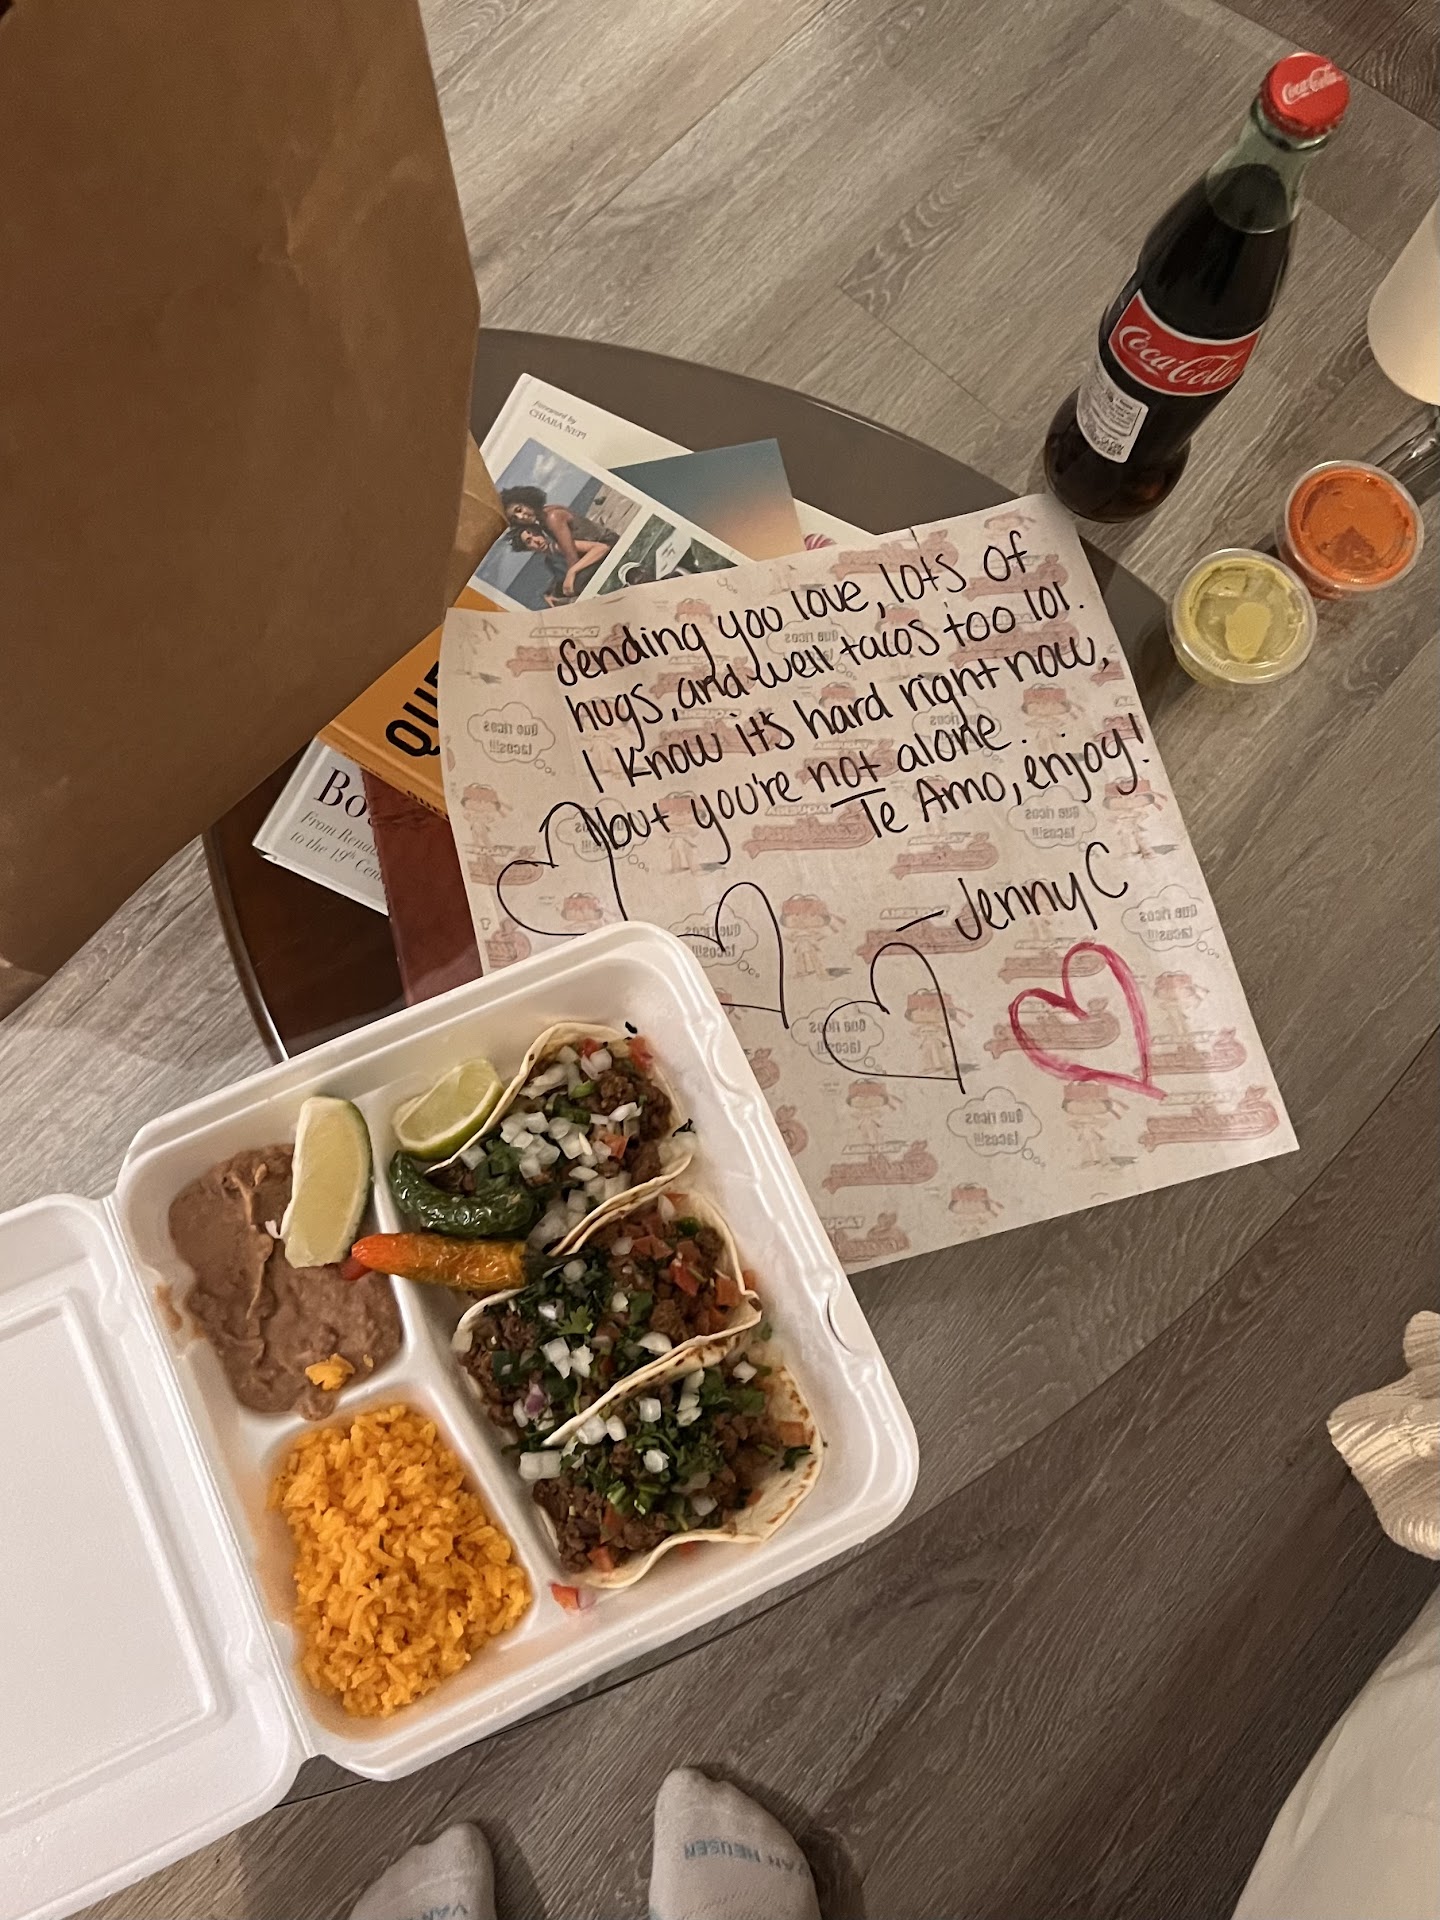 Coca-Cola
Coca-Cola
Foreword by
CHIARA NEPI
Sending you love, lots of
hugs, and well tacos too lol.
I know it's hard right now,
but you're not alone.
Te Amo, enjoy!
- Jenny C
QUE
Bo
From Renai
to the 19th Cen
Que ricos
tacos!!!
Que ricos
tacos!!!
Que ricos
tacos!!!
Que ricos
tacos!!!
Que ricos
tacos!!!
VAN HEUSEN
VAN H